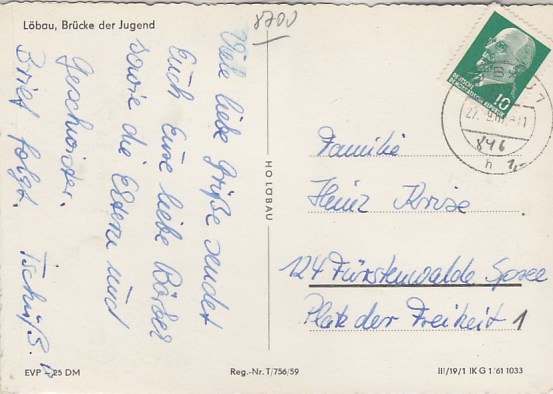 Löbau, Brücke der Jugend
8700
Viele liebe Grüße sendet
Euch Eure liebe Bärbel
sowie die Eltern und
Geschwister.
Brief folgt. Tschüß.
HOLOBAU
DEUTSCHE
DEMOKRATISCHE REPUBLIK
10
846
h 1,-
Familie
Heinz Kruse
124 Fürstenwalde Spree
Platz der Freiheit 1
EVP –25 DM
Reg.-Nr. T/756/59
III/19/1 IK G 1/61 1033